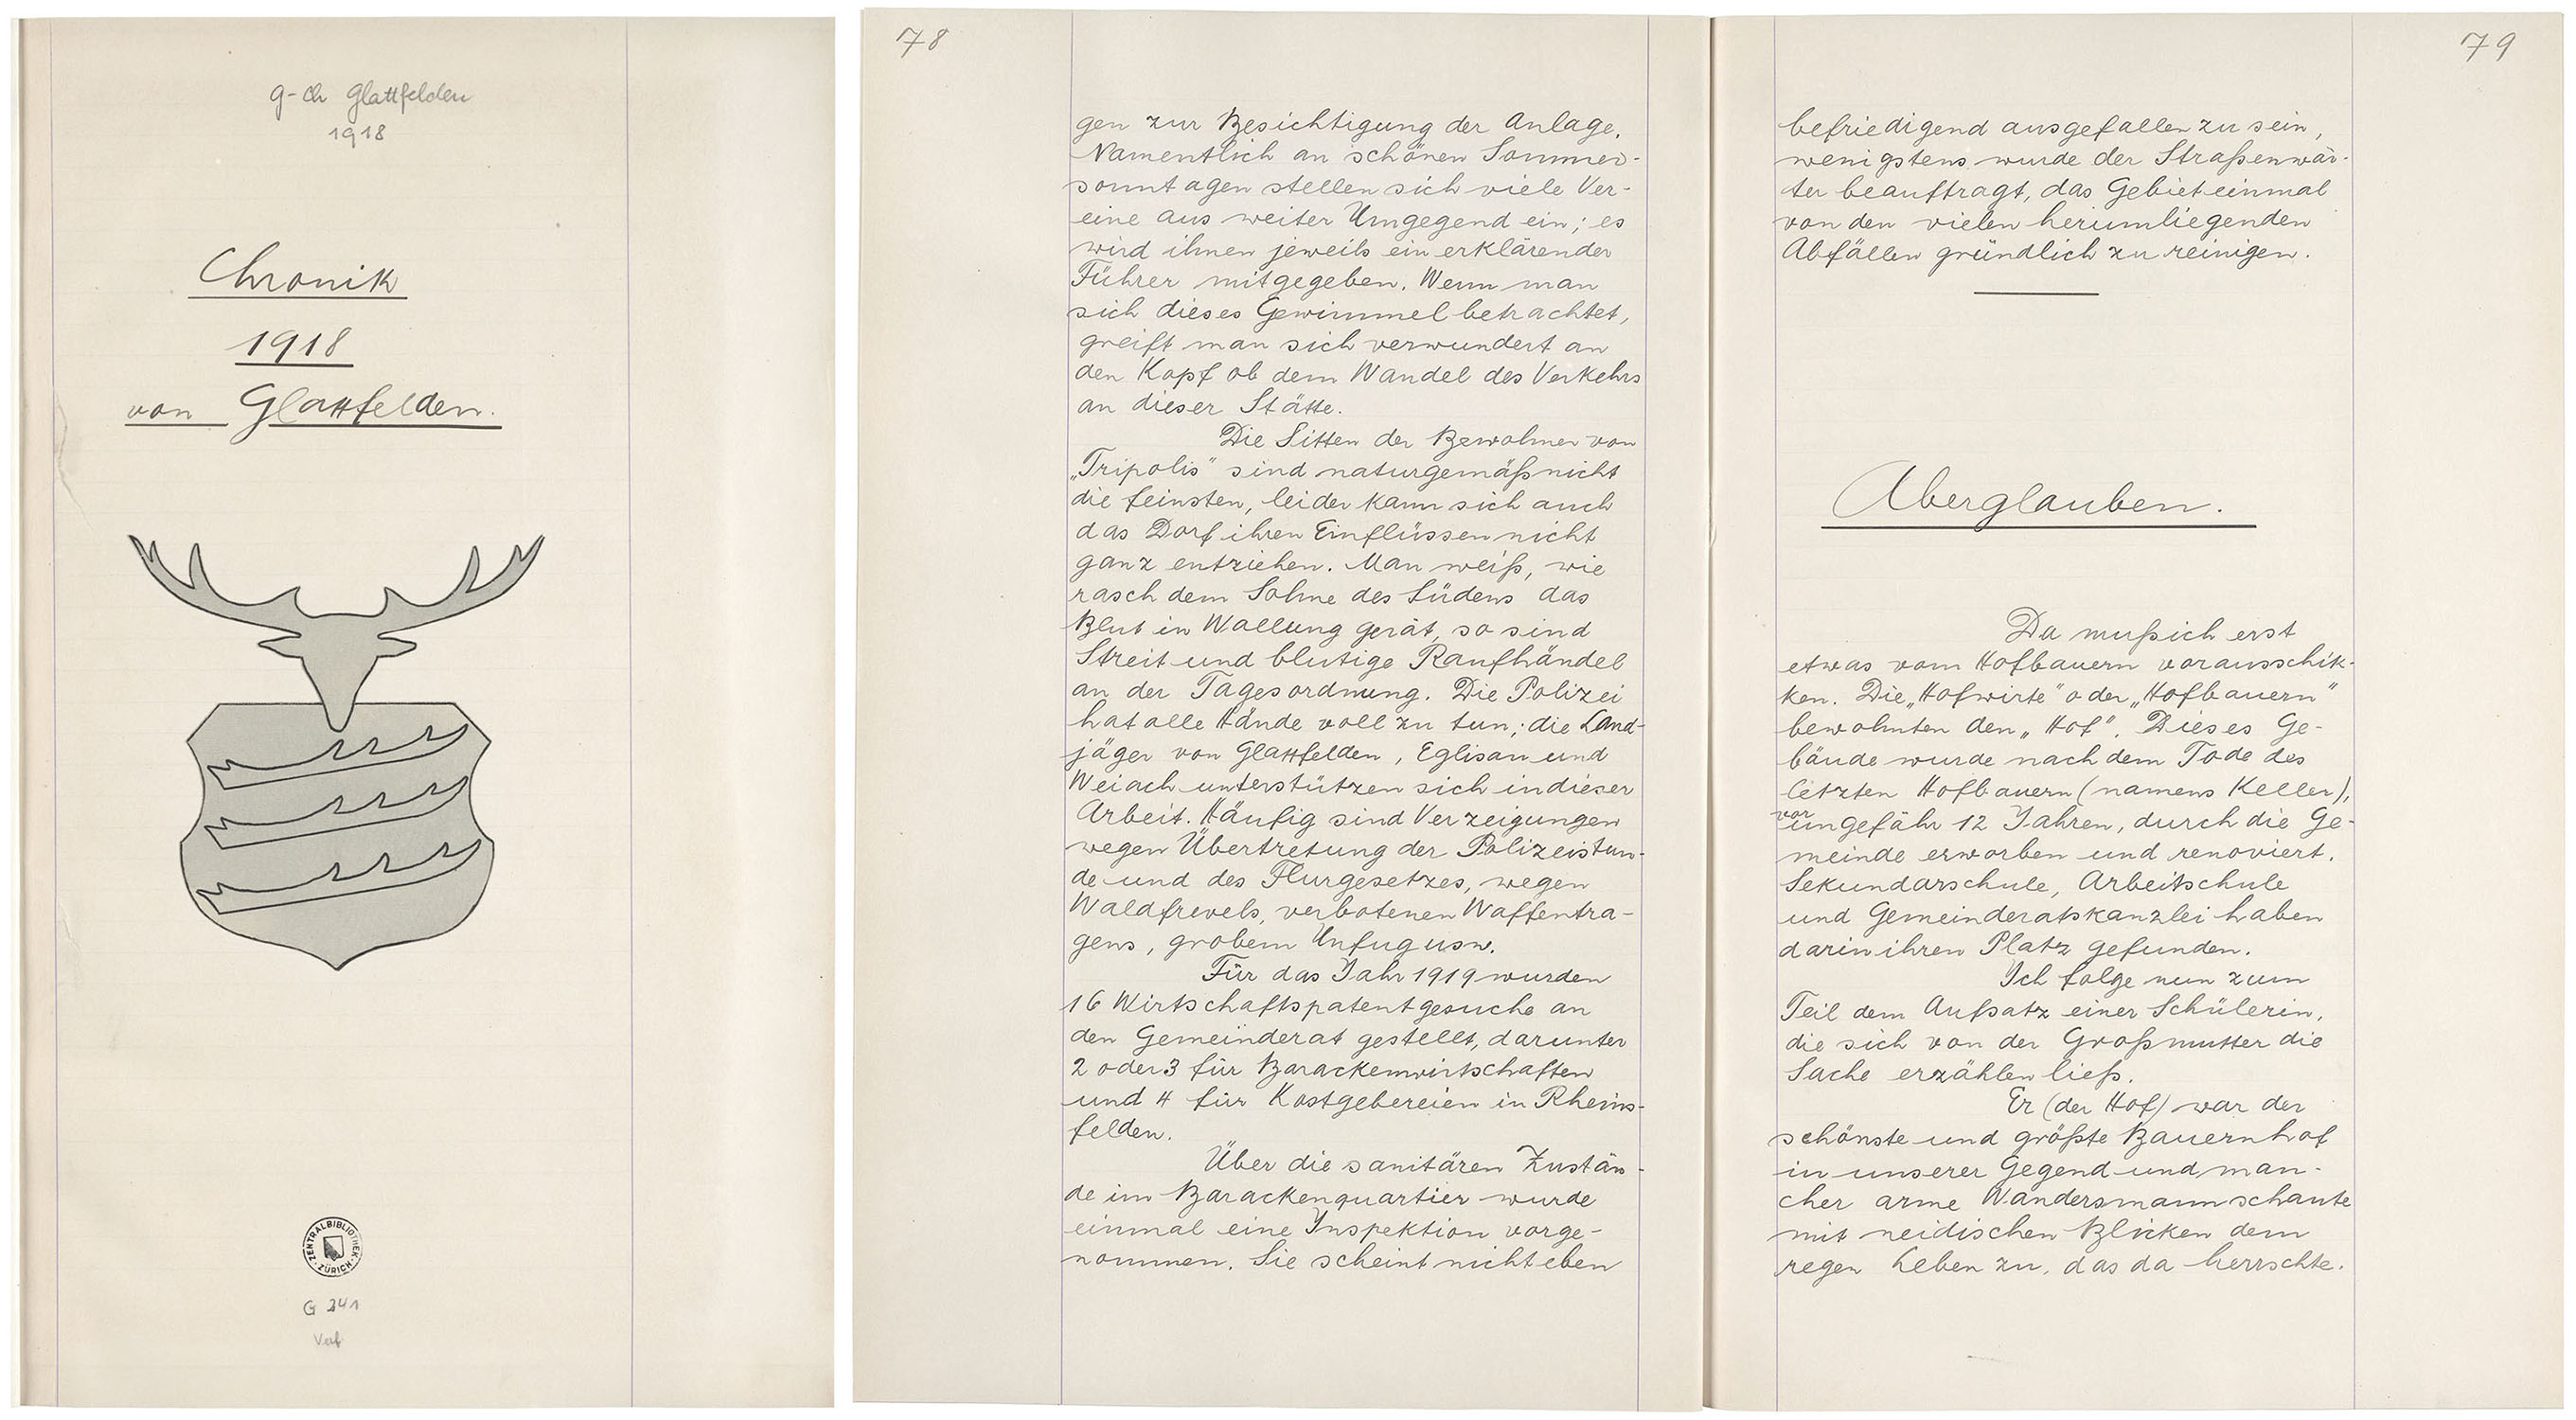 g-ch Glattfelden
1918
Chronik
1918
von Glattfelden.
ZENTRALBIBLIOTHEK
ZÜRICH
G 241
78
gen zur Besichtigung der Anlage.
Namentlich an schönen Sommer-
sonntagen stellen sich viele Ver-
eine aus weiter Umgegend ein; es
wird ihnen jeweils ein erklärender
Führer mitgegeben. Wenn man
sich dieses Gewimmel betrachtet,
greift man sich verwundert an
den Kopf ob dem Wandel des Verkehrs
an dieser Stätte.
Die Sitten der Bewohner von
„Tripolis" sind naturgemäß nicht
die feinsten, leider kann sich auch
das Dorf ihren Einflüssen nicht
ganz entziehen. Man weiß, wie
rasch dem Sohne des Südens das
Blut in Wallung gerät, so sind
Streit und blutige Raufhändel
an der Tagesordnung. Die Polizei
hat alle Hände voll zu tun; die Land-
jäger von Glattfelden, Eglisau und
Weiach unterstützen sich in dieser
Arbeit. Häufig sind Verzeigungen
wegen Übertretung der Polizeistun-
de und des Flurgesetzes, wegen
Waldfrevels, verbotenen Waffentra-
gens, grobem Unfug usw.
Für das Jahr 1919 wurden
16 Wirtschaftspatentgesuche an
den Gemeinderat gestellt, darunter
2 oder 3 für Barackenwirtschaften
und 4 für Kostgebereien in Rheins-
felden.
Über die sanitären Zustän-
de im Barackenquartier wurde
einmal eine Inspektion vorge-
nommen. Sie scheint nicht eben
79
befriedigend ausgefallen zu sein,
wenigstens wurde der Straßenwär-
ter beauftragt, das Gebiet einmal
von den vielen herumliegenden
Abfällen gründlich zu reinigen.
Aberglauben.
Da muß ich erst
etwas vom Hofbauern vorausschik-
ken. Die „Hofwirte" oder „Hofbauern"
bewohnten den „Hof". Dieses Ge-
bäude wurde nach dem Tode des
letzten Hofbauern (namens Keller),
vor ungefähr 12 Jahren, durch die Ge-
meinde erworben und renoviert.
Sekundarschule, Arbeitschule
und Gemeinderatskanzlei haben
darin ihren Platz gefunden.
Ich folge nun zum
Teil dem Aufsatz einer Schülerin,
die sich von der Großmutter die
Sache erzählen ließ.
Er (der Hof) war der
schönste und größte Bauernhof
in unserer Gegend und man-
cher arme Wandersmann schaute
mit neidischen Blicken dem
regen Leben zu, das da herrschte.